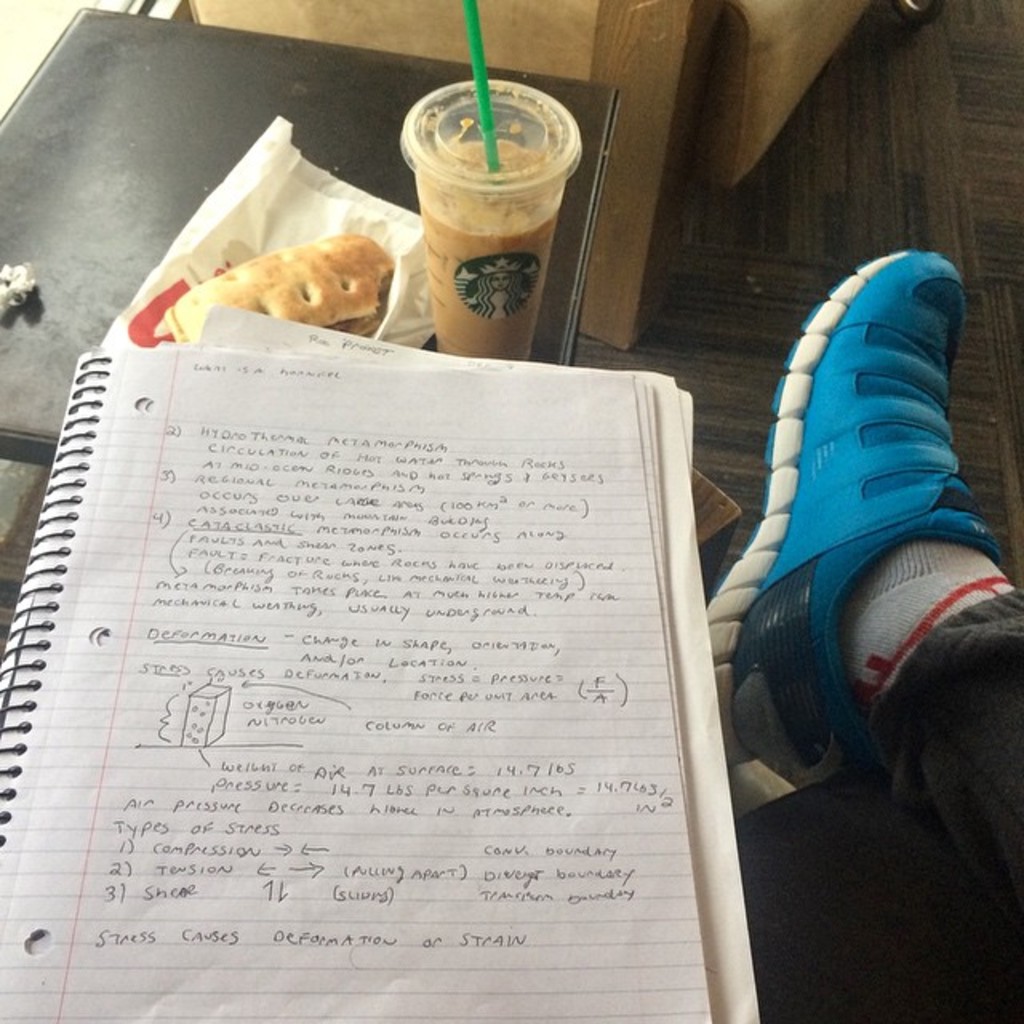 WHAT IS A HORNFEL
2) HYDROTHERMAL METAMORPHISM
CIRCULATION OF HOT WATER THROUGH ROCKS
AT MID-OCEAN RIDGES AND HOT SPRINGS & GEYSERS
3) REGIONAL METAMORPHISM
OCCURS OVER LARGE AREAS (100 KM² OR MORE)
ASSOCIATED WITH MOUNTAIN BUILDING
4) CATACLASTIC METAMORPHISM OCCURS ALONG
FAULTS AND SHEAR ZONES.
FAULT = FRACTURE WHERE ROCKS HAVE BEEN DISPLACED.
(BREAKING OF ROCKS, LIKE MECHANICAL WEATHERING)
METAMORPHISM TAKES PLACE AT MUCH HIGHER TEMP THAN
MECHANICAL WEATHING, USUALLY UNDERGROUND.
DEFORMATION - CHANGE IN SHAPE, ORIENTATION,
AND/OR LOCATION.
STRESS CAUSES DEFORMATION. STRESS = PRESSURE =
FORCE PER UNIT AREA (F/A)
1"
OXYGEN
NITROGEN
COLUMN OF AIR
WEIGHT OF AIR AT SURFACE = 14.7 lbs
PRESSURE = 14.7 LBS PER SQURE INCH = 14.7 LBS/IN²
AIR PRESSURE DECREASES HIGHER IN ATMOSPHERE.
TYPES OF STRESS
1) COMPRESSION → ← CONV. BOUNDARY
2) TENSION ← → (PULLING APART) DIVERGT BOUNDARY
3) SHEAR ↑↓ (SLIDING) TRANSFORM BOUNDARY
STRESS CAUSES DEFORMATION OR STRAIN